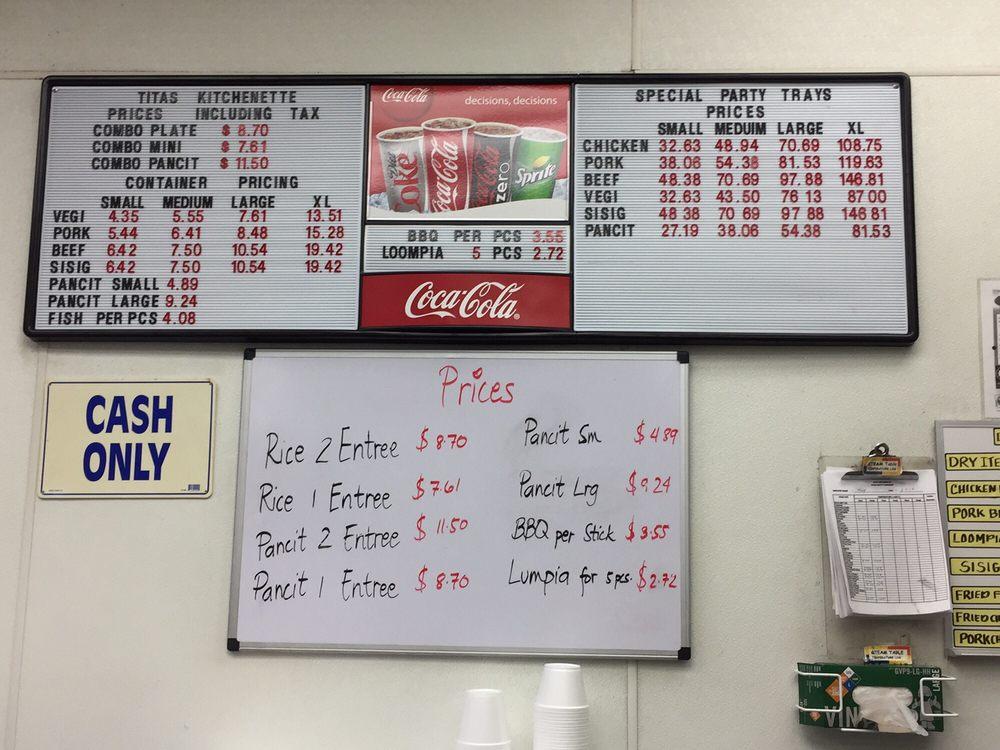 TITAS KITCHENETTE
PRICES INCLUDING TAX
COMBO PLATE $ 8.70
COMBO MINI $ 7.61
COMBO PANCIT $ 11.50
CONTAINER PRICING
SMALL MEDIUM LARGE XL
VEGI 4.35 5.55 7.61 13.51
PORK 5.44 6.41 8.48 15.28
BEEF 6.42 7.50 10.54 19.42
SISIG 6.42 7.50 10.54 19.42
PANCIT SMALL 4.89
PANCIT LARGE 9.24
FISH PER PCS 4.08
Coca-Cola
decisions, decisions
Diet Coke
Coca-Cola
zero
Sprite
BBQ PER PCS 3.55
LOOMPIA 5 PCS 2.72
Coca-Cola
SPECIAL PARTY TRAYS
PRICES
SMALL MEDUIM LARGE XL
CHICKEN 32.63 48.94 70.69 108.75
PORK 38.06 54.38 81.53 119.63
BEEF 48.38 70.69 97.88 146.81
VEGI 32.63 43.50 76 13 87 00
SISIG 48 38 70 69 97 88 146 81
PANCIT 27.19 38.06 54.38 81.53
CASH
ONLY
Prices
Rice 2 Entree $ 8.70
Rice 1 Entree $ 7.61
Pancit 2 Entree $ 11.50
Pancit 1 Entree $ 8.70
Pancit Sm $ 4.89
Pancit Lrg $ 9.24
BBQ per Stick $ 3.55
Lumpia for 5 pcs. $ 2.72
STEAM TABLE
DRY ITE
CHICKEN
PORK B
LOOMPI
SISIG
FRIED F
FRIED C
PORKCH
STEAM TABLE
GVP9-LG-HH
LARGE
VIN